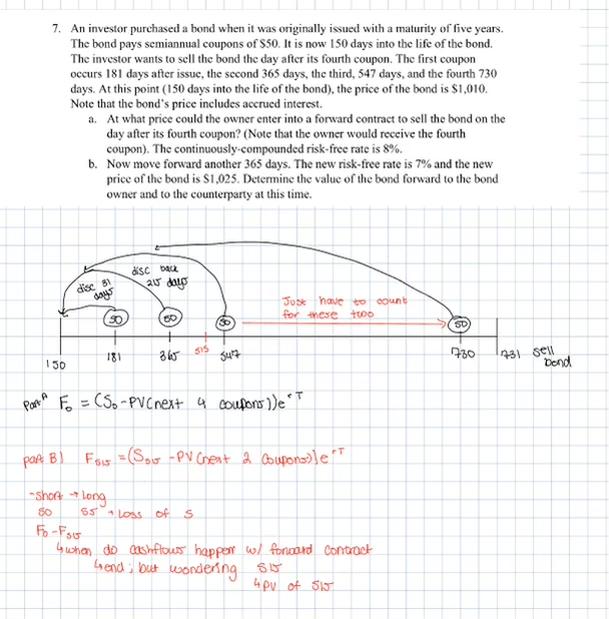 7. An investor purchased a bond when it was originally issued with a maturity of five years.
The bond pays semiannual coupons of $50. It is now 150 days into the life of the bond.
The investor wants to sell the bond the day after its fourth coupon. The first coupon
occurs 181 days after issue, the second 365 days, the third, 547 days, and the fourth 730
days. At this point (150 days into the life of the bond), the price of the bond is $1,010.
Note that the bond's price includes accrued interest.
a. At what price could the owner enter into a forward contract to sell the bond on the
day after its fourth coupon? (Note that the owner would receive the fourth
coupon). The continuously-compounded risk-free rate is 8%.
b. Now move forward another 365 days. The new risk-free rate is 7% and the new
price of the bond is $1,025. Determine the value of the bond forward to the bond
owner and to the counterparty at this time.
disc 31
days
disc back
215 days
Just have to count
for these two
50 50 50 50
150 181 365 515 547 730 731 sell
bond
Part A F₀ = (S₀ - PV(next 4 coupons))e^rT
part B) F₅₁₅ = (S₅₁₅ - PV(next 2 coupons))e^rT
-short → long
50 55 → Loss of 5
F₀ - F₅₁₅
↳ when do cashflows happen w/ forward contract
↳ end; but wondering 515
↳ PV of 515